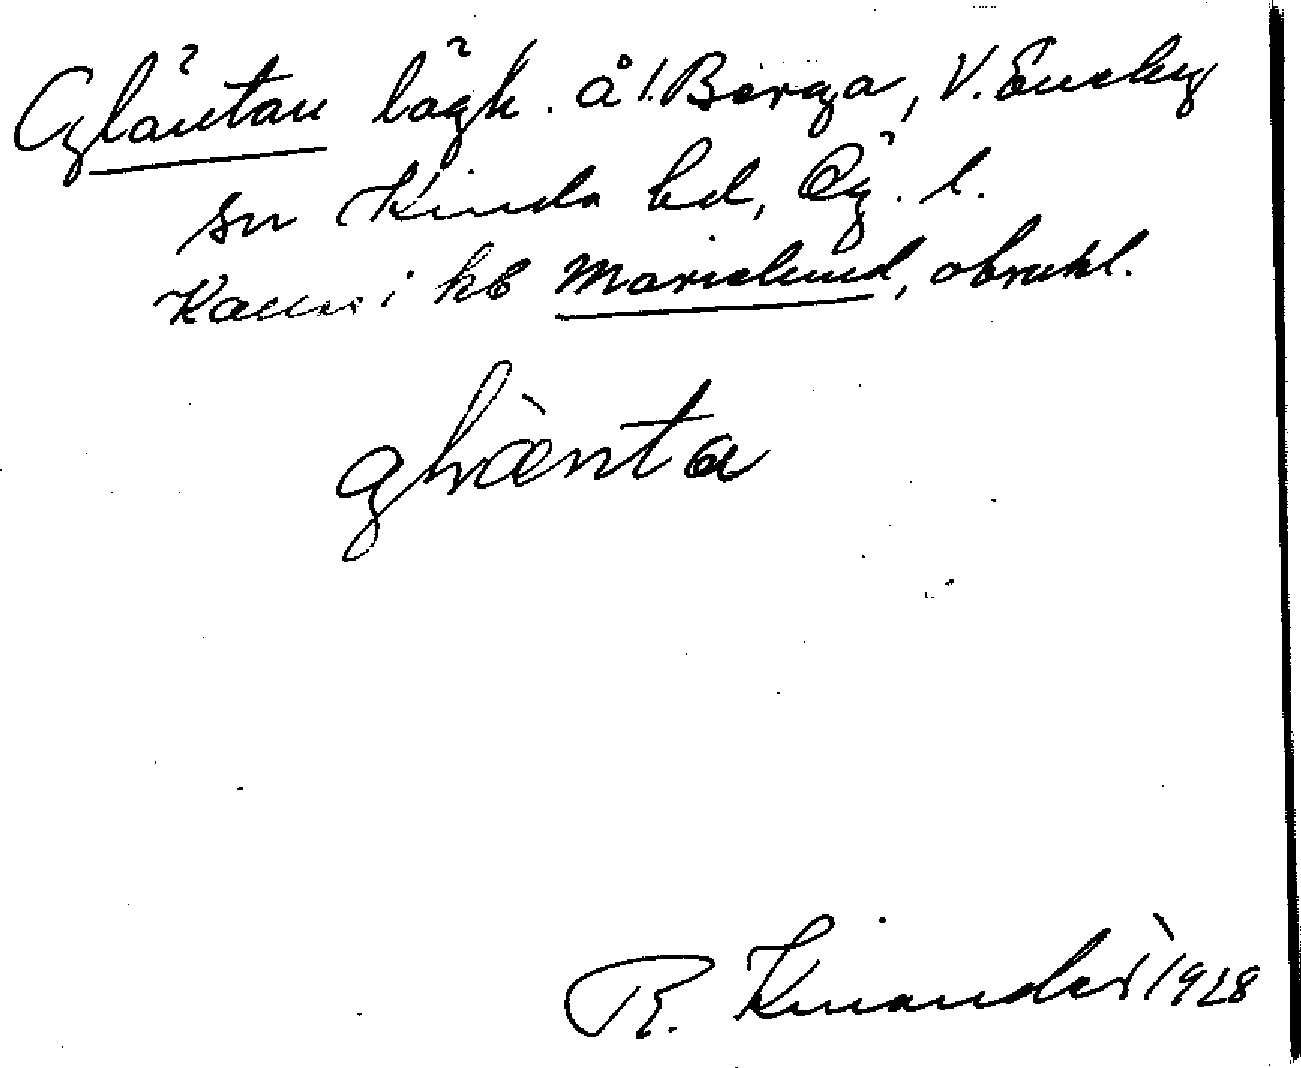 Gläntan lägh. å l. Börga, V. Eneby
sn Kinda hd, Ög. l.
Kallas i kb Marielund, obrukl.
glànta
R. Kinander 1928